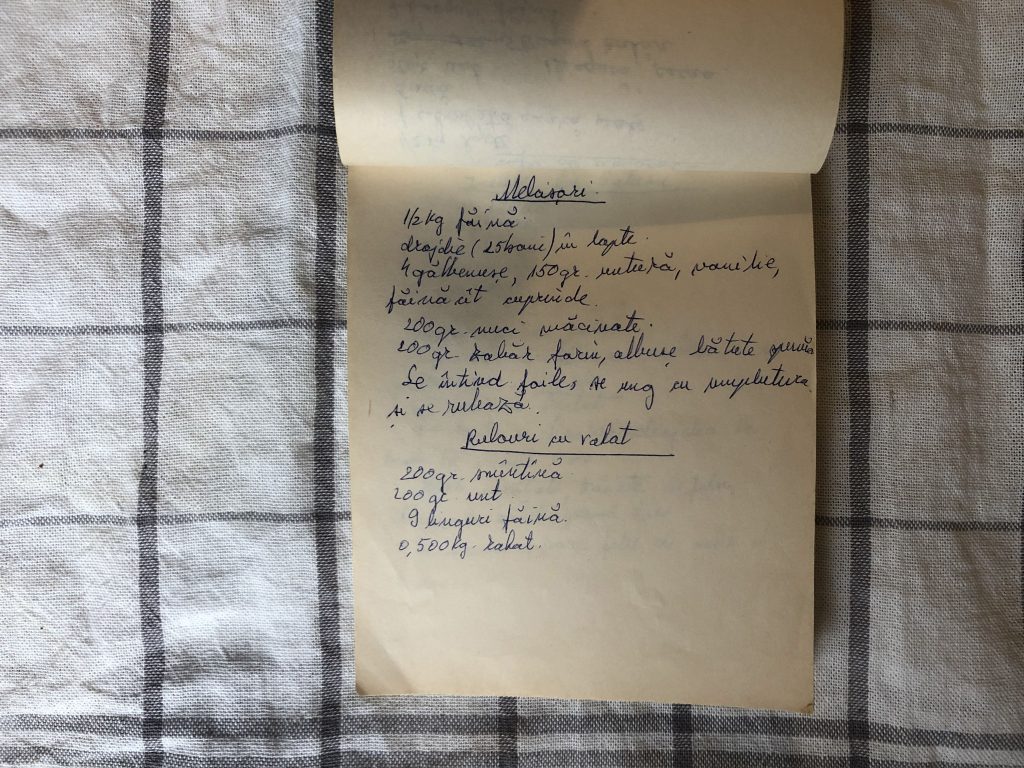 Melcișori.
1/2 kg făină.
drojdie (25 bani) în lapte.
4 gălbenușe, 150 gr. untură, vanilie,
făină cît cuprinde.
200 gr. nuci măcinate.
200 gr zahăr farin, albușe bătute spumă
Se întind foile, se ung cu umplutura
și se rulează.
Rulouri cu rahat
200 gr. smîntînă
200 gr unt.
9 linguri făină.
0,500 kg. rahat.